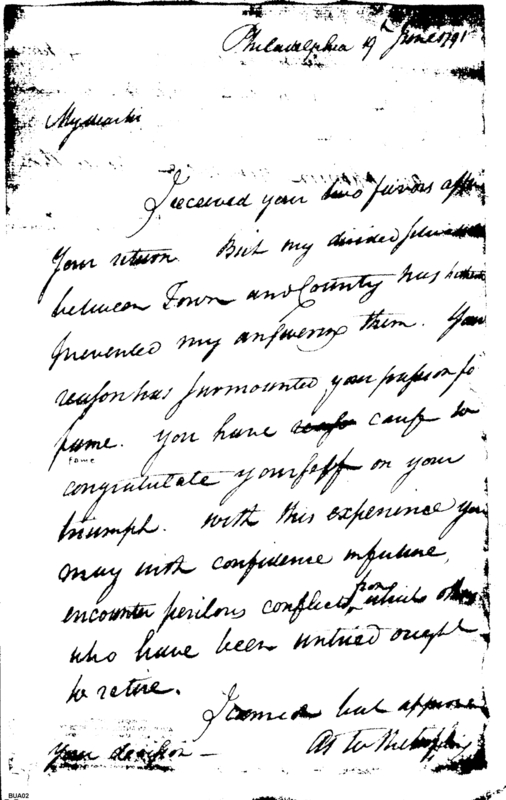 Philadelphia 19th June 1791
My dear sir
I received your two favors after
your return. But my divided
between Town and County has
prevented my answering them. Your
reason has surmounted your passion fo
fame. You have cause to
fame
congratulate yourself on your
triumph. With this experience you
may with confidence in future,
encounter perilous conflicts, from which others
who have been untried ought
to retire.
I cannot but approve
your decision —
As to
BUA02